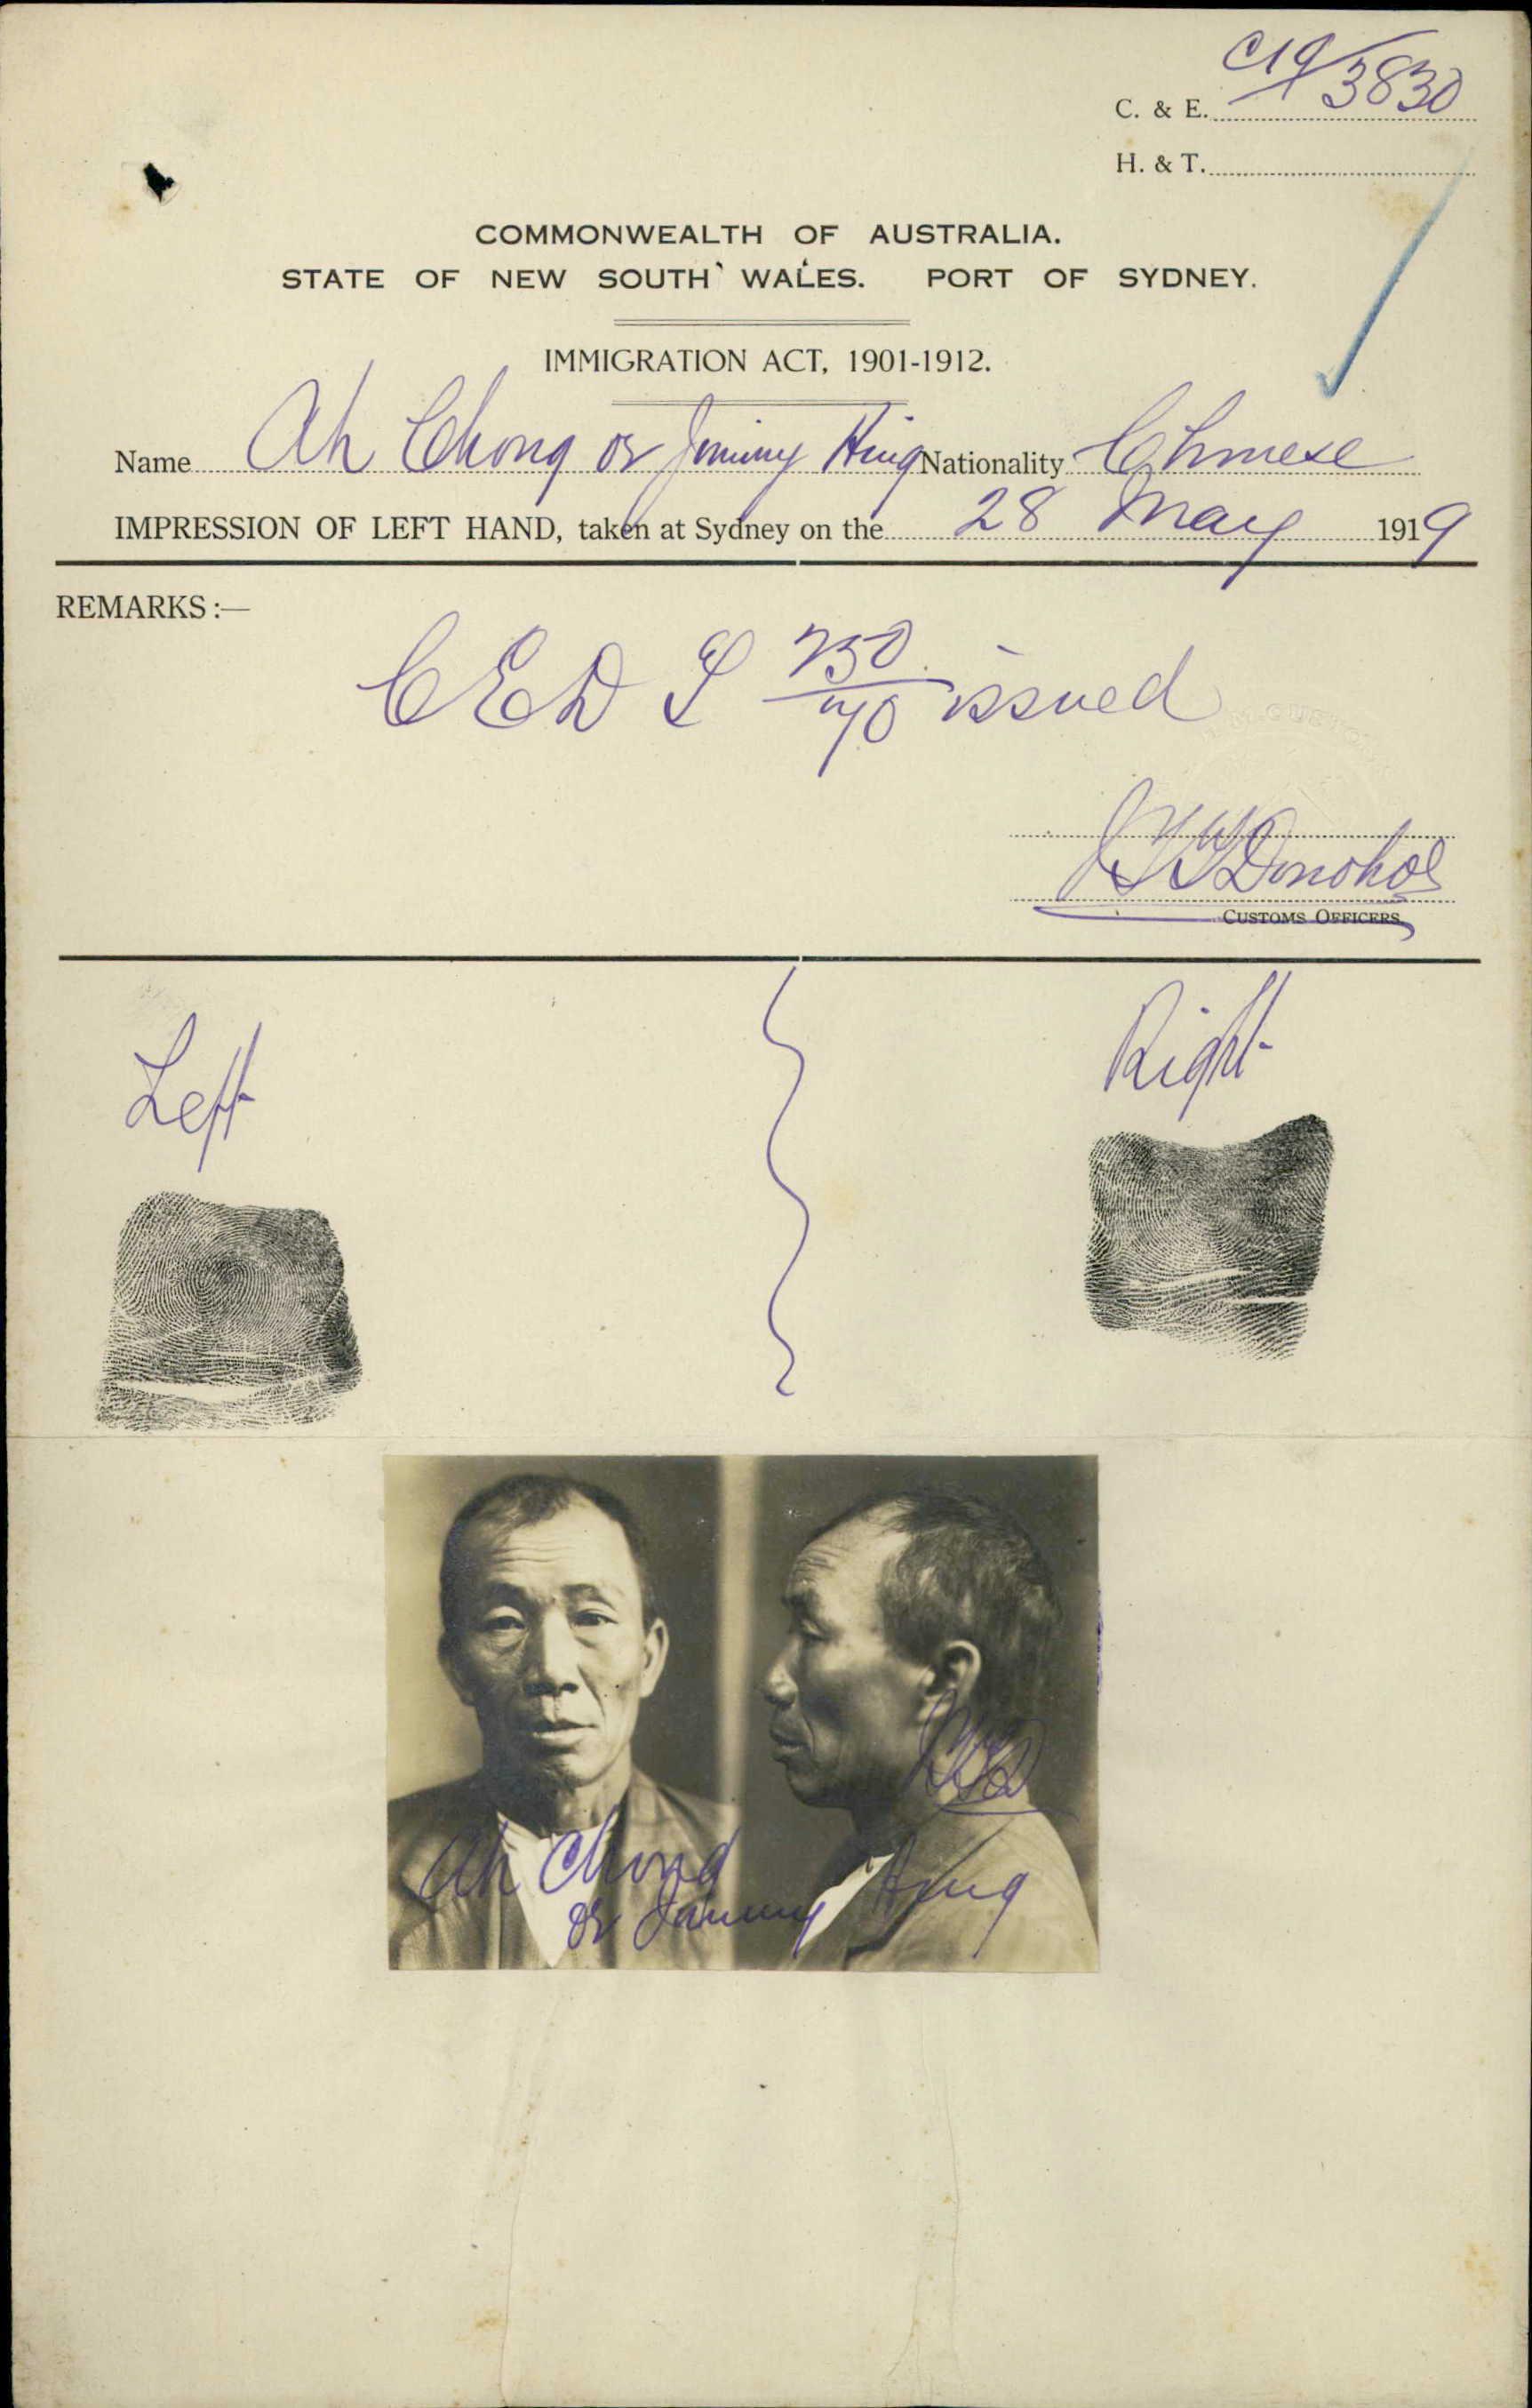 C. & E. C19/3830
H. & T.
COMMONWEALTH OF AUSTRALIA.
STATE OF NEW SOUTH WALES. PORT OF SYDNEY.
IMMIGRATION ACT, 1901-1912.
Name Ah Chong or Jimmy Hing Nationality Chinese
IMPRESSION OF LEFT HAND, taken at Sydney on the 28 May 1919
REMARKS :—
CEDT 250/70 issued
Donohoe
CUSTOMS OFFICERS
Left
Right
Ah Chong
or Jimmy Hing